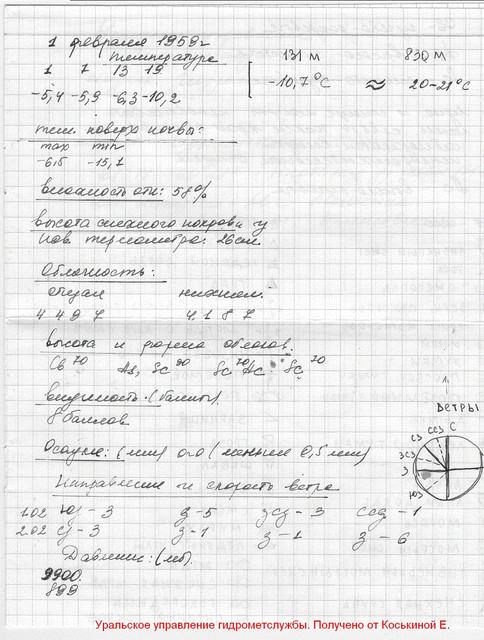 1 февраля 1959г
температура
131 м 830 м
1 7 13 19
-10,7°C ≈ 20-21°C
-5,4 -5,9 -6,3 -10,2
тем. поверх почвы:
max min
-6,5 -15,1
влажность отн: 58%
высота снежного покрова у
пов. термометра: 26см
Облачность:
общая нижняя:
4 4 9 7 4 1 8 7
высота и форма облаков.
Cb 70 As, Sc 90 Sc 70 Ac Sc 70
видимость: (баллы).
8 баллов
ветры
Осадки: (мм) 0,0 (менее 0,5 мм)
ССЗ С
СЗ
ЗСЗ
З
ЮЗ
Направление и скорость ветра
1.02 ЮЗ - 3 З - 5 ЗСЗ - 3 ССЗ - 1
2.02 СЗ - 3 З - 1 З - 1 З - 6
Давление: (мб).
9900.
899
Уральское управление гидрометслужбы. Получено от Коськиной Е.